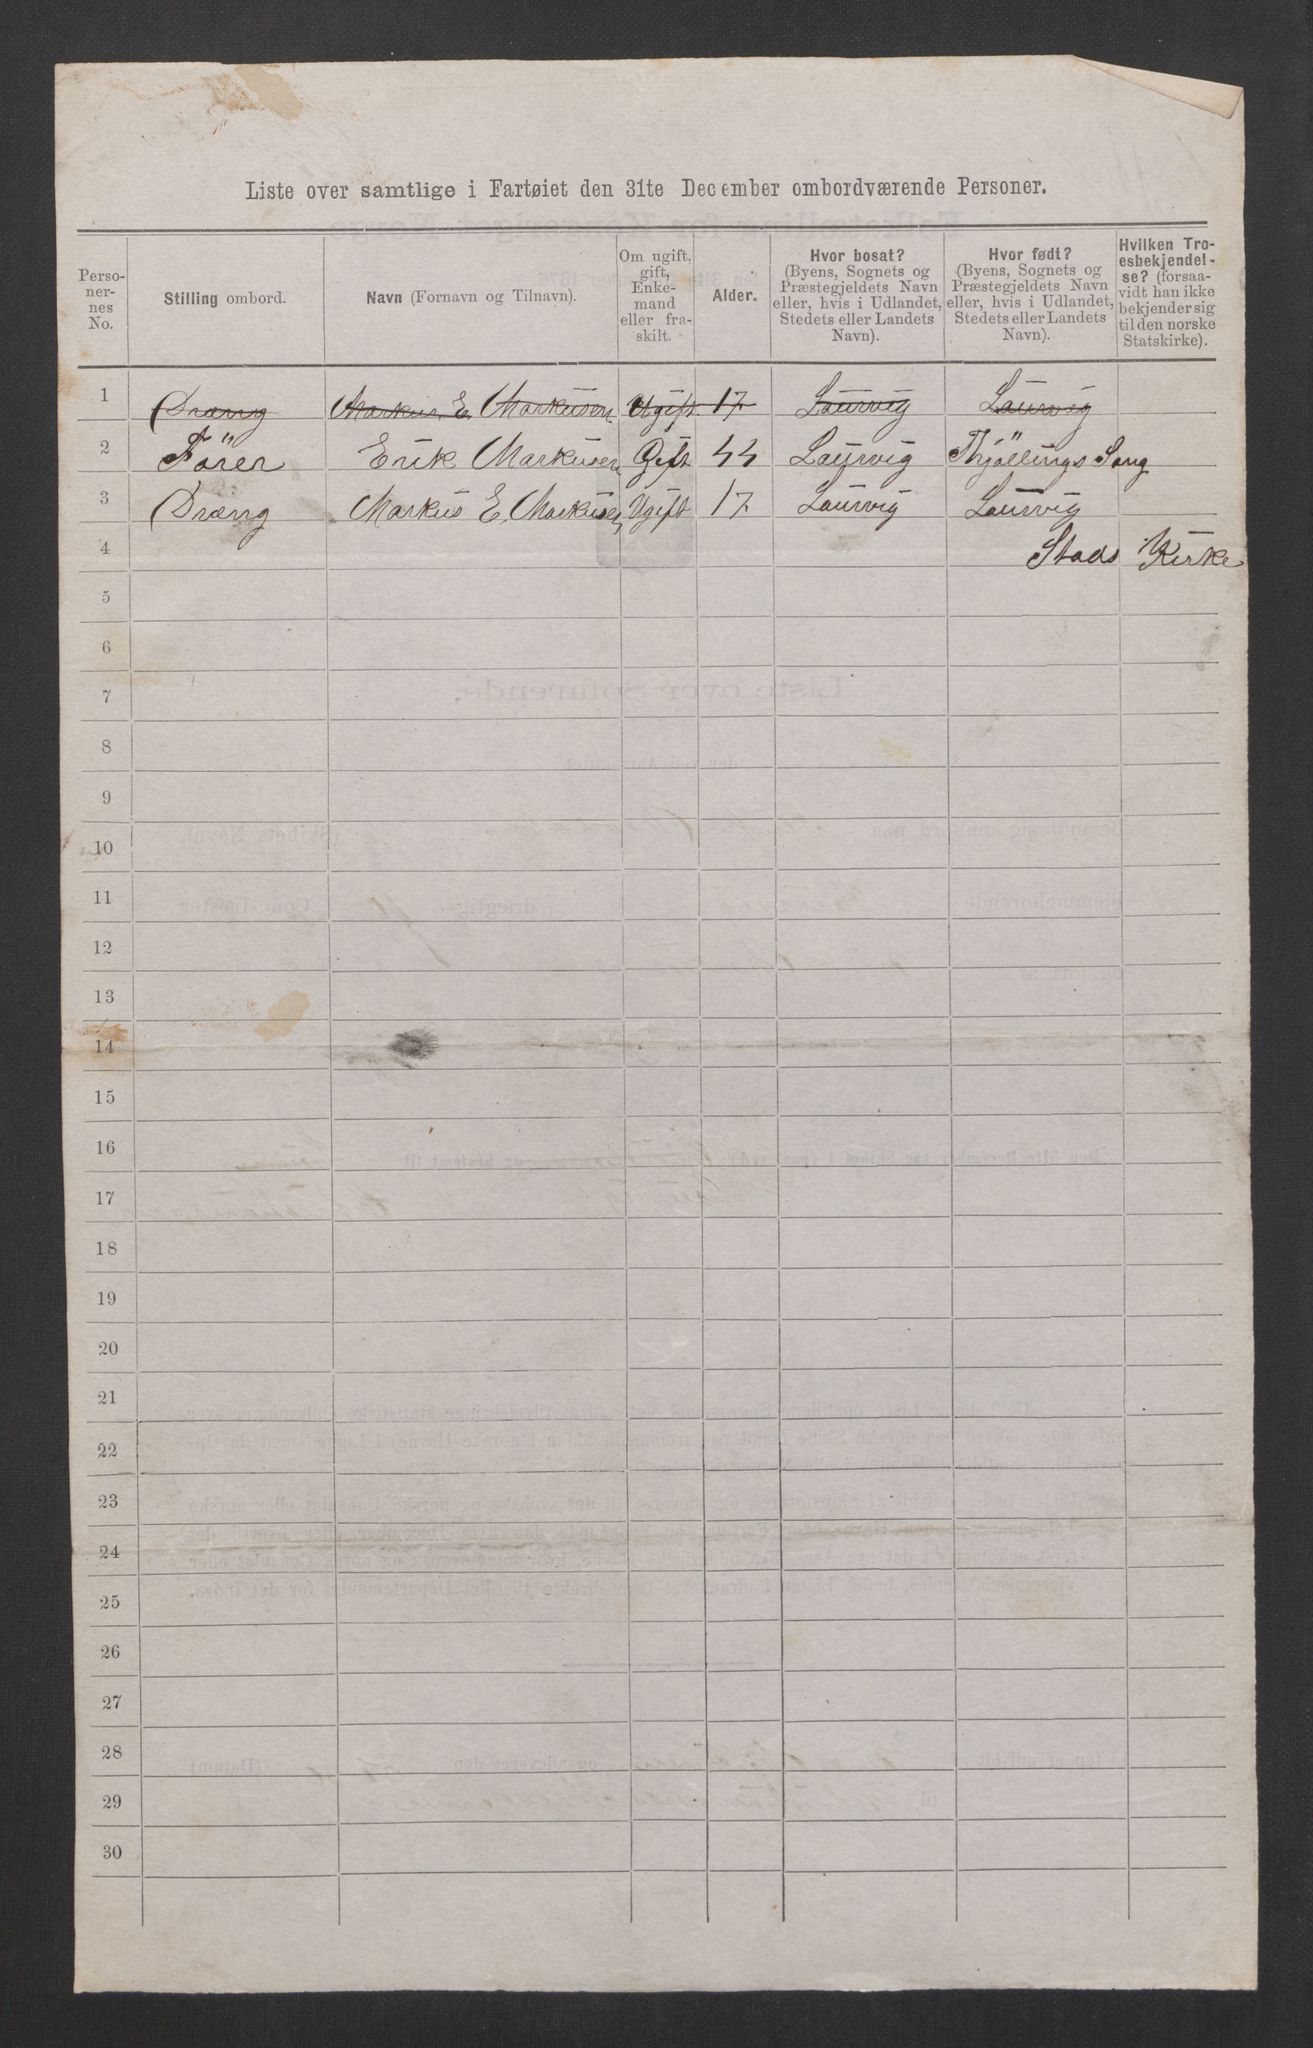 Liste over samtlige i Fartøiet den 31te December ombordværende Personer.
Perso-nernes No. | Stilling ombord. | Navn (Fornavn og Tilnavn). | Om ugift, gift, Enkemand eller fraskilt. | Alder. | Hvor bosat? (Byens, Sognets og Præstegjeldets Navn eller, hvis i Udlandet, Stedets eller Landets Navn). | Hvor født? (Byens, Sognets og Præstegjeldets Navn eller, hvis i Udlandet, Stedets eller Landets Navn). | Hvilken Troesbekjendelse? (forsaavidt han ikke bekjender sig til den norske Statskirke).
1 Dræng Markus E. Markusen Ugift 17 Laurvig Laurvig
2 Förer Erik Markusen Gift 44 Laurvig Thjöllings Song
3 Dræng Markus E. Markusen Ugift 17 Laurvig Laurvig
4 Stads Kirke
5
6
7
8
9
10
11
12
13
14
15
16
17
18
19
20
21
22
23
24
25
26
27
28
29
30